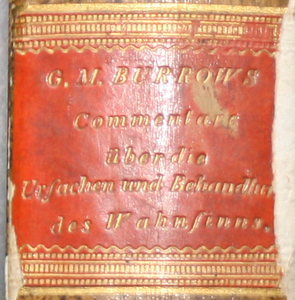 G. M. BURROWS
Commentare
über die
Urſachen und Behandlun
des Wahnſinns.